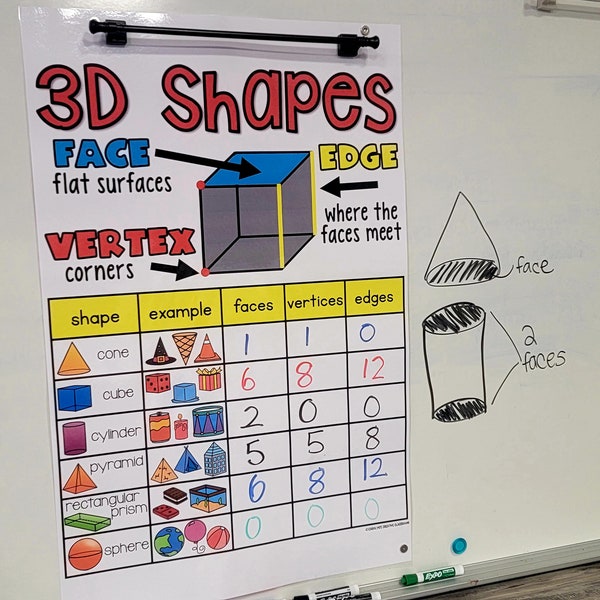 3D Shapes
FACE
flat surfaces
EDGE
where the
faces meet
VERTEX
corners
shape example faces vertices edges
cone 1 1 0
cube 6 8 12
cylinder 2 0 0
pyramid 5 5 8
rectangular
prism 6 8 12
sphere 0 0 0
face
2
faces
EXPO